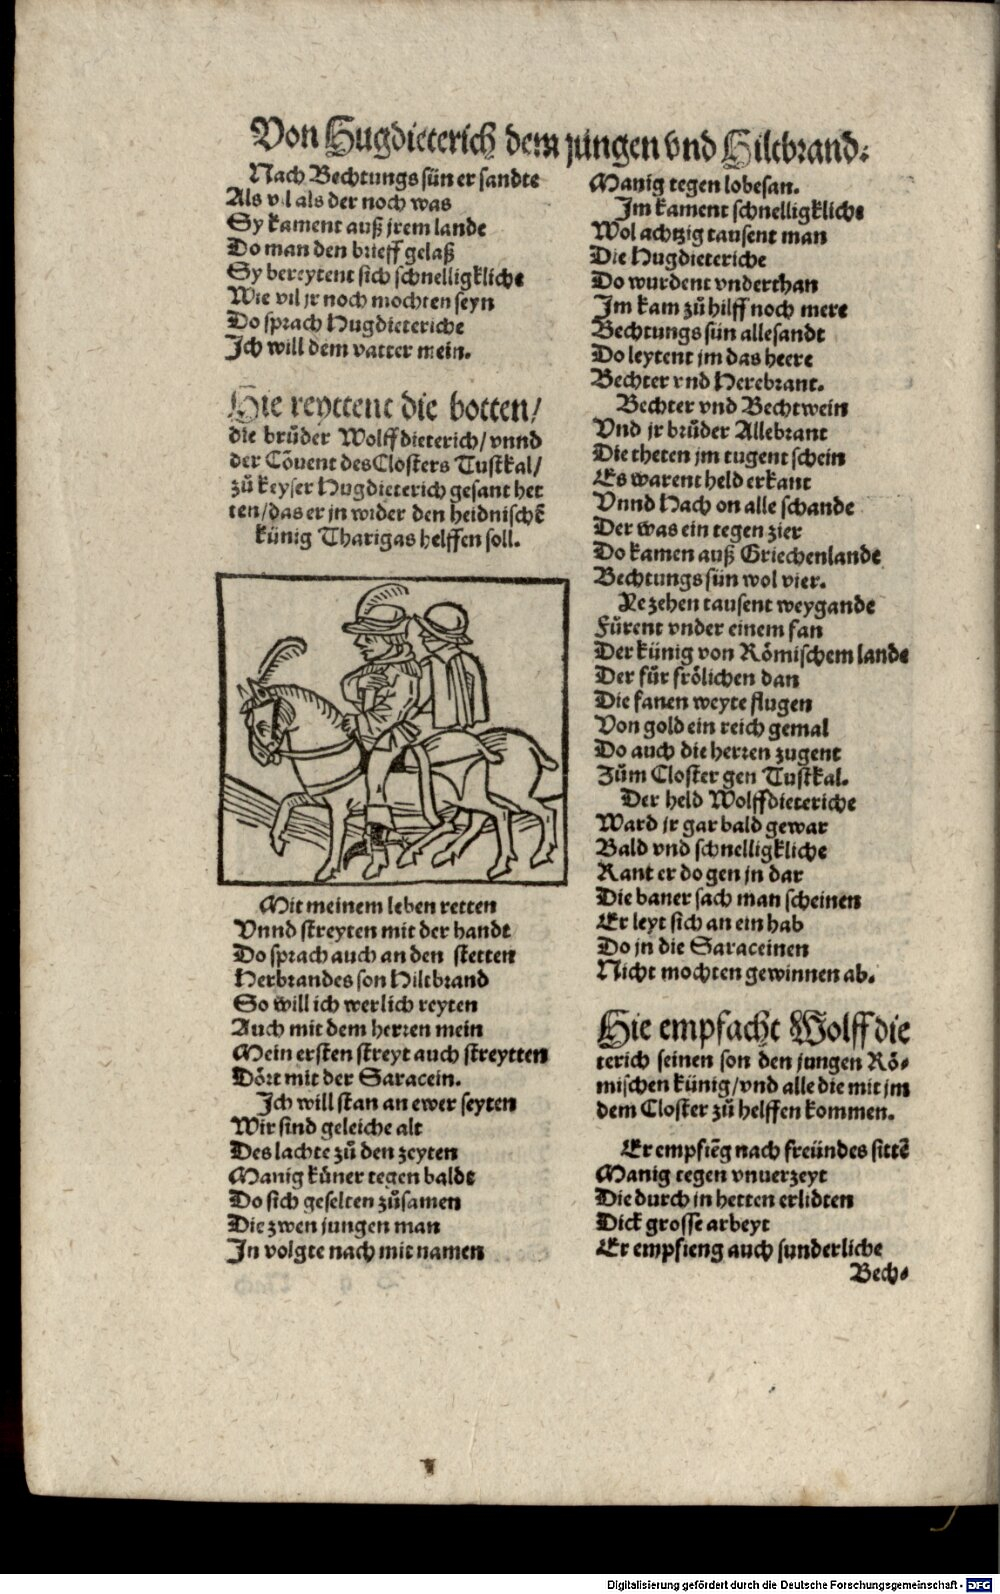 Von Hugdieterich dem jüngen vnd Hiltbrand:
Nach Bechtungs sün er sandte
Als vil als der noch was
Sy kament auß jrem lande
Do man den brieff gelaß
Sy bereytent sich schnelligkliche
Wie vil jr noch mochten seyn
Do sprach Hugdieteriche
Ich will dem vatter mein.
Hie reyttent die botten/
die brůder Wolffdieterich/ vnnd
der Cõuent des Closters Tustkal/
zů keyser Hugdieterich gesant het
ten/das er jn wider den heidnischẽ
künig Tharigas helffen soll.
Mit meinem leben retten
Vnnd streyten mit der handt
Do sprach auch an den stetten
Herbrandes son Hiltbrand
So will ich werlich reyten
Auch mit dem herren mein
Mein ersten streyt auch streytten
Dört mit der Saracein.
Ich will stan an ewer seyten
Wir sind geleiche alt
Des lachte zů den zeyten
Manig küner tegen balde
Do sich geselten zůsamen
Die zwen jungen man
In volgte nach mit namen
Manig tegen lobesan.
Im kament schnelligkliche
Wol achtzig tausent man
Die Hugdieteriche
Do wurdent vnderthan
Im kam zů hilff noch mere
Bechtungs sün allesandt
Do leytent jm das heere
Bechter vnd Herebrant.
Bechter vnd Bechtwein
Vnd jr brůder Allebrant
Die theten jm tugent schein
Es warent held erkant
Vnnd Hach on alle schande
Der was ein tegen zier
Do kamen auß Griechenlande
Bechtungs sün wol vier.
Ye zehen tausent weygande
Fůrent vnder einem fan
Der künig von Römischem lande
Der fůr frölichen dan
Die fanen weyte flugen
Von gold ein reich gemal
Do auch die herren zugent
Zům Closter gen Tustkal.
Der held Wolffdieteriche
Ward jr gar bald gewar
Bald vnd schnelligkliche
Rant er do gen jn dar
Die baner sach man scheinen
Er leyt sich an ein hab
Do jn die Saraceinen
Nicht mochten gewinnen ab.
Hie empfacht Wolffdie
terich seinen son den jungen Rö-
mischen künig/vnd alle die mit jm
dem Closter zů helffen kommen.
Er empfiẽg nach freündes sittẽ
Manig tegen vnuerzeyt
Die durch in hetten erlidten
Dick grosse arbeyt
Er empfieng auch sunderliche
Bech-
Digitalisierung gefördert durch die Deutsche Forschungsgemeinschaft - DFG